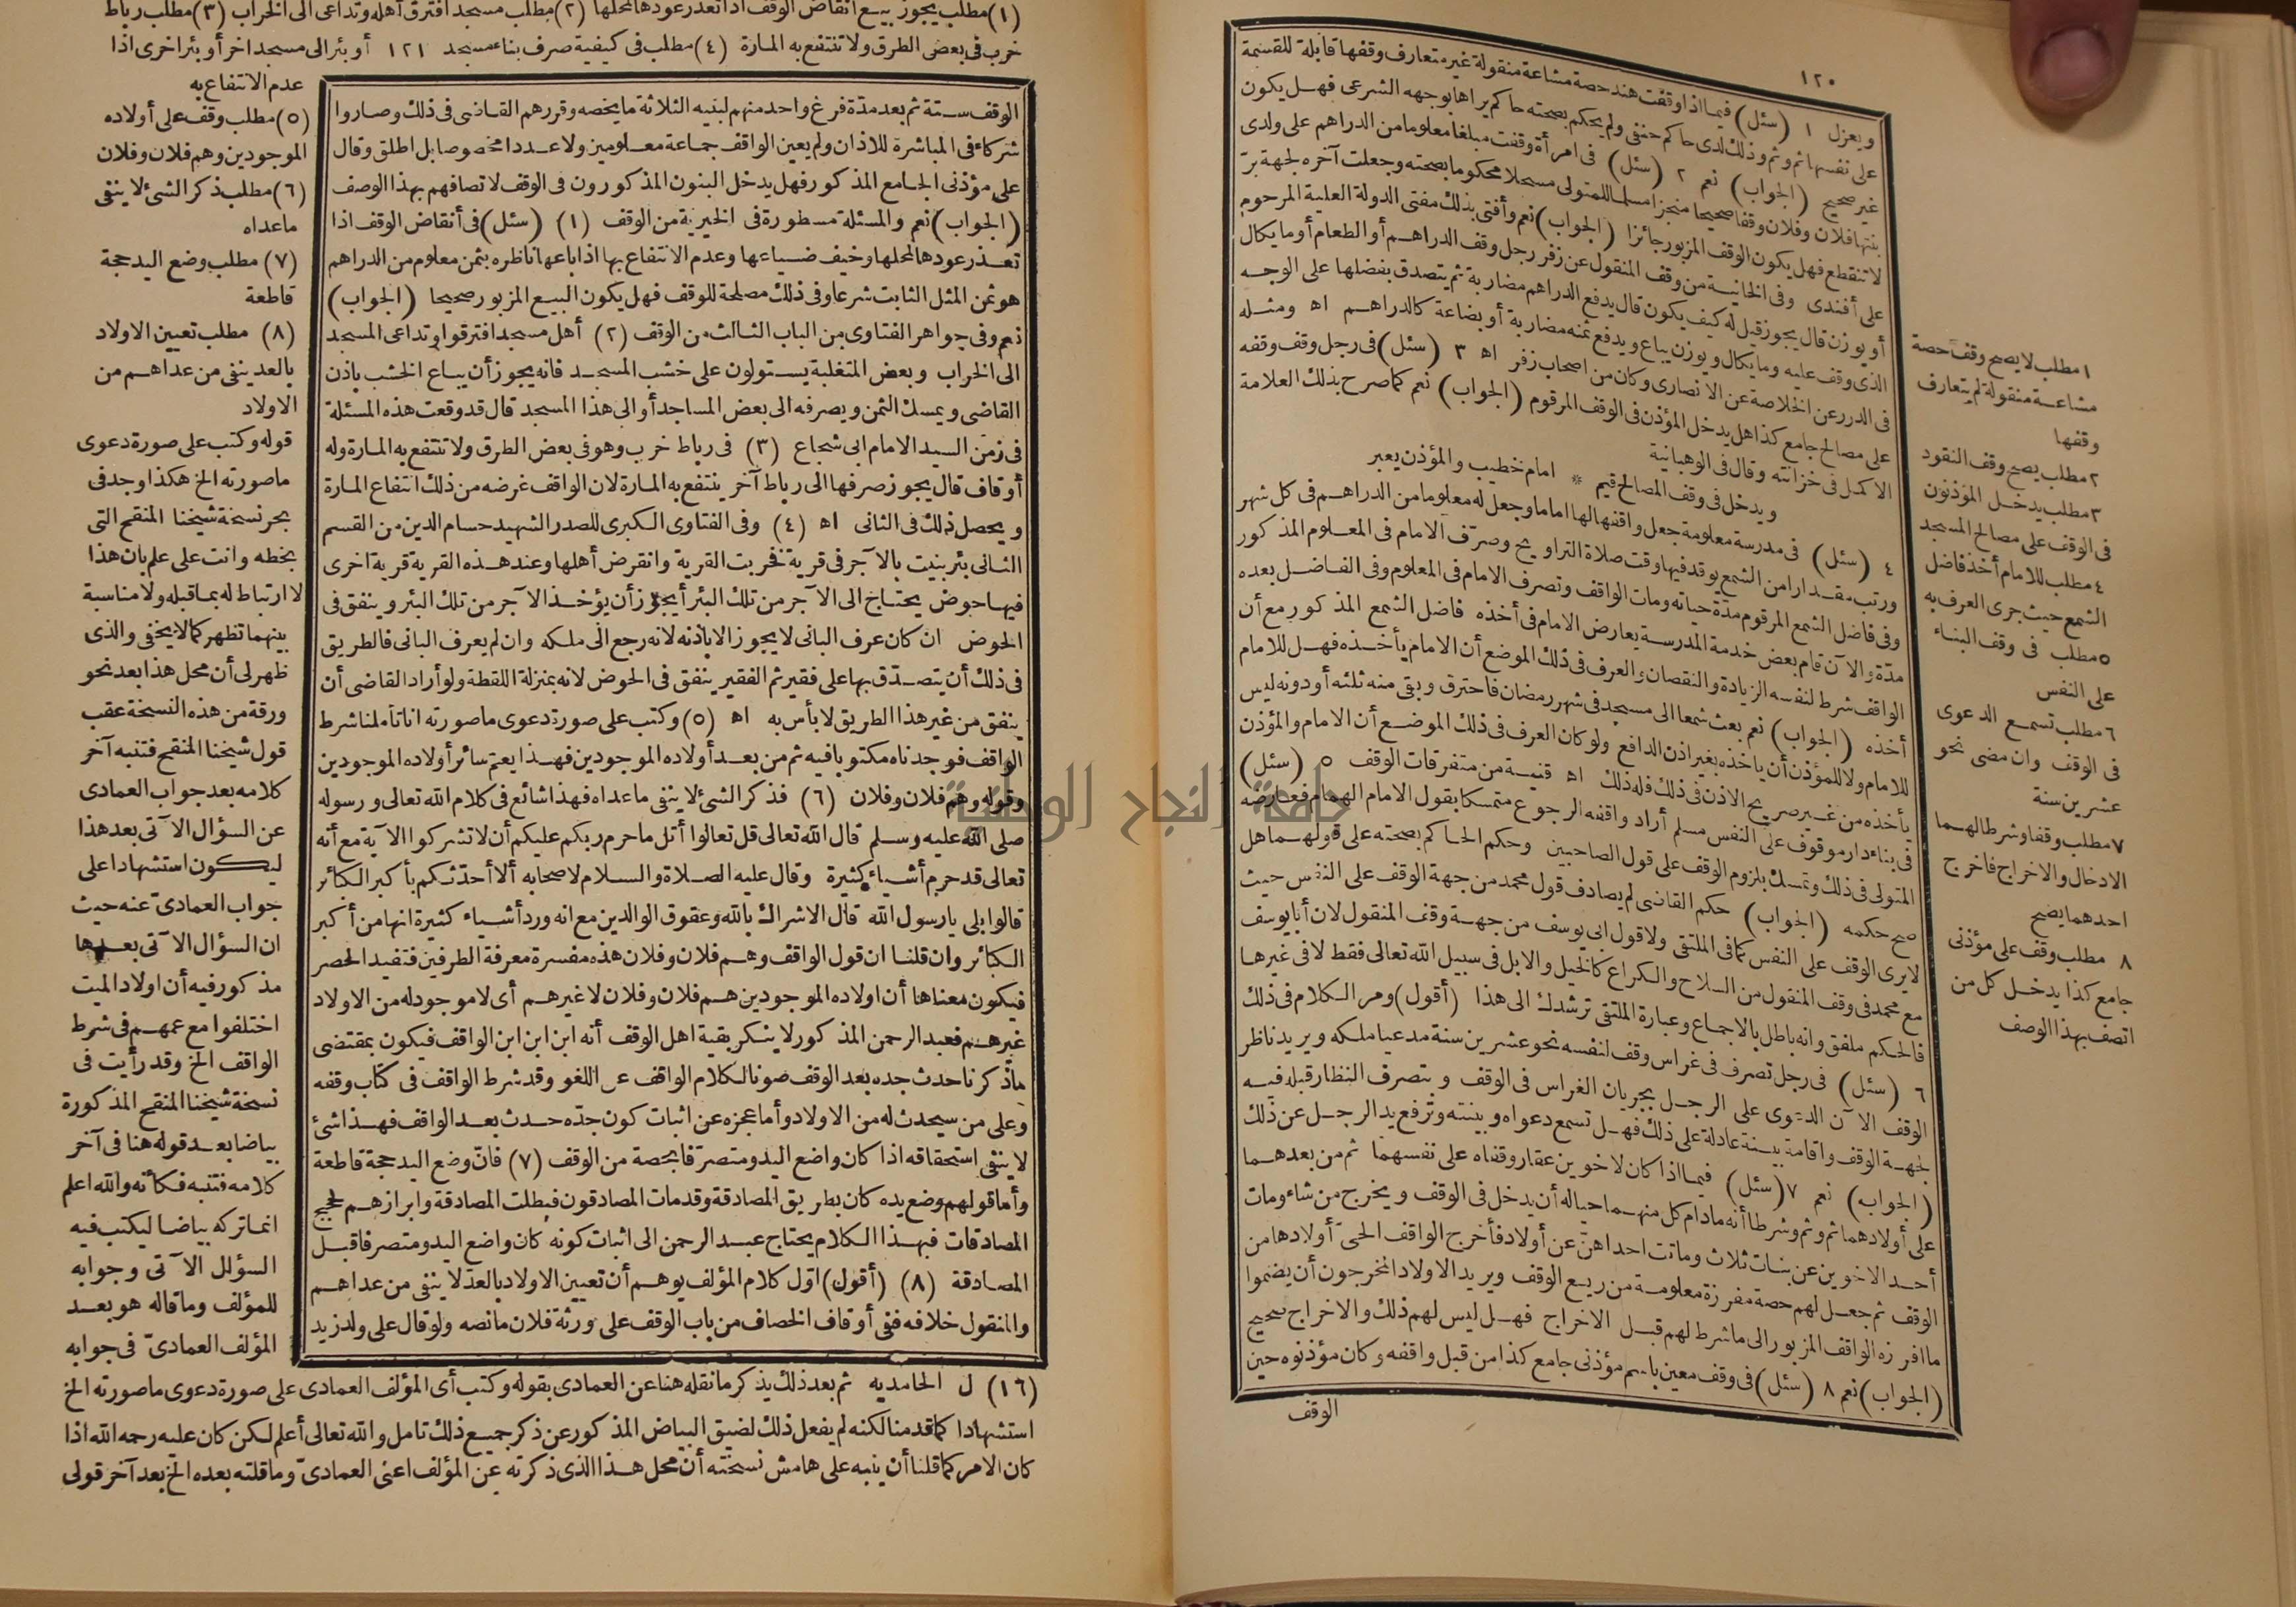 ١٢٠
ويعزل ١ (سئل) فيما اذا وقفت هند حصة مشاعة منقولة غير متعارف وقفها قابلة للقسمة
على نفسها ثم وثم وذلك لدى حاكم حنفى ولم يحكم بصحته حاكم يراها بوجهه الشرعى فهل يكون
غير صحيح (الجواب) نعم ٢ (سئل) فى امرأة وقفت مبلغا معلوما من الدراهم على ولدى
بنتها فلان وفلان وقفا صحيحا منجزا مسلما للمتولى مسجلا محكوما بصحته وجعلت آخره لجهة برّ
لا تنقطع فهل يكون الوقف المزبور جائزا (الجواب) نعم وأفتى بذلك مفتى الدولة العلية المرحوم
على أفندى وفى الخانية من وقف المنقول عن زفر رجل وقف الدراهم أو الطعام أو ما يكال
أو يوزن قال يجوز قيل له كيف يكون قال يدفع الدراهم مضاربة ثم يتصدق بفضلها على الوجه
الذى وقف عليه وما يكال ويوزن يباع ويدفع ثمنه مضاربة أو بضاعة كالدراهم اه ومثله
فى الدرر عن الخلاصة عن الانصارى وكان من اصحاب زفر اه ٣ (سئل) فى رجل وقف وقفه
على مصالح جامع كذا هل يدخل المؤذن فى الوقف المرقوم (الجواب) نعم كما صرح بذلك العلامة
الاكمل فى خزانته وقال فى الوهبانية
ويدخل فى وقف المصالح قيم * امام خطيب والمؤذن يعبر
٤ (سئل) فى مدرسة معلومة جعل واقفها لها اماما وجعل له معلوما من الدراهم فى كل شهر
ورتب مقدارا من الشمع يوقد فيها وقت صلاة التراويح وصرّف الامام فى المعلوم المذكور
وفى فاضل الشمع المرقوم مدّة حياته ومات الواقف وتصرف الامام فى المعلوم وفى الفاضل بعده
مدّة والآن قام بعض خدمة المدرسة يعارض الامام فى أخذه فاضل الشمع المذكور مع أن
الواقف شرط لنفسه الزيادة والنقصان والعرف فى ذلك الموضع أن الامام يأخذه فهل للامام
أخذه (الجواب) نعم بعث شمعا الى مسجد فى شهر رمضان فاحترق وبقى منه ثلثه أو دونه ليس
للامام ولا للمؤذن أن يأخذه بغير اذن الدافع ولو كان العرف فى ذلك الموضع أن الامام والمؤذن
يأخذه من غير صريح الاذن فى ذلك فله ذلك اه قنية من متفرقات الوقف ٥ (سئل)
فى بناء دار موقوف على النفس مسلم أراد واقفه الرجوع متمسكا بقول الامام الهمام فعارضه
المتولى فى ذلك وتمسك بلزوم الوقف على قول الصاحبين وحكم الحاكم بصحته على قولهما هل
صح حكمه (الجواب) حكم القاضى لم يصادف قول محمد من جهة الوقف على النفس حيث
لا يرى الوقف على النفس كما فى الملتقى ولا قول ابى يوسف من جهة وقف المنقول لان أبا يوسف
مع محمد فى وقف المنقول من السلاح والكراع كالخيل والابل فى سبيل الله تعالى فقط لا فى غيرها
فالحكم ملفق وانه باطل بالاجماع وعبارة الملتقى ترشدك الى هذا (أقول) ومر الكلام فى ذلك
٦ (سئل) فى رجل تصرف فى غراس وقف لنفسه نحو عشرين سنة مدعيا ملكه ويريد ناظر
الوقف الآن الدعوى على الرجل بجريان الغراس فى الوقف وبتصرف النظار قبله فيه
لجهة الوقف واقامة بينة عادلة على ذلك فهل تسمع دعواه وبينته وترفع يد الرجل عن ذلك
(الجواب) نعم ٧ (سئل) فيما اذا كان لاخوين عقار وقفاه على نفسهما ثم من بعدهما
على أولادهما ثم وثم وشرطا أنه ما دام كل منهما حيا له أن يدخل فى الوقف ويخرج من شاء ومات
أحد الاخوين عن بنات ثلاث وماتت احداهنّ عن أولاد فأخرج الواقف الحىّ أولادها من
الوقف ثم جعل لهم حصة مفرزة معلومة من ريع الوقف ويريد الاولاد المخرجون أن يضموا
ما افرزه الواقف المزبور الى ما شرط لهم قبل الاخراج فهل ليس لهم ذلك والاخراج صحيح
(الجواب) نعم ٨ (سئل) فى وقف معين باسم مؤذنى جامع كذا من قبل واقفه وكان مؤذنوه حين
الوقف
١ مطلب لا يصح وقف حصة
مشاعة منقولة لم يتعارف
وقفها
٢ مطلب يصح وقف النقود
٣ مطلب يدخل المؤذنون
فى الوقف على مصالح المسجد
٤ مطلب للامام أخذ فاضل
الشمع حيث جرى العرف به
٥ مطلب فى وقف البناء
على النفس
٦ مطلب تسمع الدعوى
فى الوقف وان مضى نحو
عشرين سنة
٧ مطلب وقفا وشرطا لهما
الادخال والاخراج فاخرج
احدهما يصح
٨ مطلب وقف على مؤذنى
جامع كذا يدخل كل من
اتصف بهذا الوصف
(١) مطلب يجوز بيع انقاض الوقف اذا تعذر عودها لمحلها (٢) مطلب مسجد افترق أهله وتداعى الى الخراب (٣) مطلب رباط
خرب فى بعض الطرق ولا تنتفع به المارة (٤) مطلب فى كيفية صرف بناء مسجد ١٢١ أو بئر الى مسجد اخر أو بئر اخرى اذا
عدم الانتفاع به
(٥) مطلب وقف على أولاده
الموجودين وهم فلان وفلان
(٦) مطلب ذكر الشئ لا ينفى
ما عداه
(٧) مطلب وضع اليد حجة
قاطعة
(٨) مطلب تعيين الاولاد
بالعد ينفى من عداهم من
الاولاد
قوله وكتب على صورة دعوى
ما صورته الخ هكذا وجد فى
بحر نسخة شيخنا المنقح التى
بخطه وانت على علم بان هذا
لا ارتباط له بما قبله ولا مناسبة
بينهما تظهر كما لا يخفى والذى
ظهر لى أن محل هذا بعد نحو
ورقة من هذه النسخة عقب
قول شيخنا المنقح فتنبه آخر
كلامه بعد جواب العمادى
عن السؤال الآتى بعد هذا
ليكون استشهادا على
جواب العمادىّ عنه حيث
ان السؤال الآتى بعدها
مذكور فيه أن اولاد الميت
اختلفوا مع عمهم فى شرط
الواقف الخ وقد رأيت فى
نسخة شيخنا المنقح المذكورة
بياضا بعد قوله هنا فى آخر
كلامه فتنبه فكأنه والله اعلم
انما تركه بياضا ليكتب فيه
السؤال الآتى وجوابه
للمؤلف وما قاله هو بعد
المؤلف العمادىّ فى جوابه
الوقف ستة ثم بعد مدّة فرغ واحد منهم لبنيه الثلاثة ما يخصه وقررهم القاضى فى ذلك وصاروا
شركاء فى المباشرة للاذان ولم يعين الواقف جماعة معلومين ولا عددا مخصوصا بل اطلق وقال
على مؤذنى الجامع المذكور فهل يدخل البنون المذكورون فى الوقف لاتصافهم بهذا الوصف
(الجواب) نعم والمسئلة مسطورة فى الخيرية من الوقف (١) (سئل) فى أنقاض الوقف اذا
تعذر عودها لمحلها وخيف ضياعها وعدم الانتفاع بها اذا باعها ناظره بثمن معلوم من الدراهم
هو ثمن المثل الثابت شرعا وفى ذلك مصلحة للوقف فهل يكون البيع المزبور صحيحا (الجواب)
نعم وفى جواهر الفتاوى من الباب الثالث من الوقف (٢) أهل مسجد افترقوا وتداعى المسجد
الى الخراب وبعض المتغلبة يستولون على خشب المسجد فانه يجوز أن يباع الخشب باذن
القاضى ويمسك الثمن ويصرفه الى بعض المساجد أو الى هذا المسجد قال قد وقعت هذه المسئلة
فى زمن السيد الامام ابى شجاع (٣) فى رباط خرب وهو فى بعض الطرق ولا تنتفع به المارة وله
أوقاف قال يجوز صرفها الى رباط آخر ينتفع به المارة لان الواقف غرضه من ذلك انتفاع المارة
ويحصل ذلك فى الثانى اه (٤) وفى الفتاوى الكبرى للصدر الشهيد حسام الدين من القسم
الثانى بئر بنيت بالآجر فى قرية فخربت القرية وانقرض أهلها وعند هذه القرية قرية اخرى
فيها حوض يحتاج الى الآجر من تلك البئر أيجوز أن يؤخذ الآجر من تلك البئر وينفق فى
الحوض ان كان عرف البانى لا يجوز الا باذنه لانه رجع الى ملكه وان لم يعرف البانى فالطريق
فى ذلك أن يتصدّق بها على فقير ثم الفقير ينفق فى الحوض لانه بمنزلة اللقطة ولو أراد القاضى أن
ينفق من غير هذا الطريق لا بأس به اه (٥) وكتب على صورة دعوى ما صورته انا تأملنا شرط
الواقف فوجدناه مكتوبا فيه ثم من بعد أولاده الموجودين فهذا يعم سائر أولاده الموجودين
وقوله وهم فلان وفلان (٦) فذكر الشئ لا ينفى ما عداه فهذا شائع فى كلام الله تعالى ورسوله
صلى الله عليه وسلم قال الله تعالى قل تعالوا أتل ما حرم ربكم عليكم أن لا تشركوا الآية مع أنه
تعالى قد حرم أشياء كثيرة وقال عليه الصلاة والسلام لاصحابه ألا أحدّثكم بأكبر الكبائر
قالوا بلى يا رسول الله قال الاشراك بالله وعقوق الوالدين مع انه ورد أشياء كثيرة انها من أكبر
الكبائر وان قلنا ان قول الواقف وهم فلان وفلان هذه مفسرة معرفة الطرفين فتفيد الحصر
فيكون معناها أن اولاده الموجودين هم فلان وفلان لا غيرهم أى لا موجود له من الاولاد
غيرهم فعبد الرحمن المذكور لا ينكر بقية اهل الوقف أنه ابن ابن ابن الواقف فيكون بمقتضى
ما ذكرنا حدث جده بعد الوقف صونا لكلام الواقف عن اللغو وقد شرط الواقف فى كتاب وقفه
وعلى من سيحدث له من الاولاد وأما عجزه عن اثبات كون جدّه حدث بعد الواقف فهذا شئ
لا ينفى استحقاقه اذا كان واضع اليد ومتصرّفا بحصة من الوقف (٧) فانّ وضع اليد حجة قاطعة
وأما قولهم وضع يده كان بطريق المصادقة وقد مات المصادقون فبطلت المصادقة وابرازهم لحجج
المصادقات فبهذا الكلام يحتاج عبد الرحمن الى اثبات كونه كان واضع اليد ومتصرفا قبل
المصادقة (٨) (أقول) اوّل كلام المؤلف يوهم أن تعيين الاولاد بالعدّ لا ينفى من عداهم
والمنقول خلافه ففى أوقاف الخصاف من باب الوقف على ورثة فلان ما نصه ولو قال على ولد زيد
(١٦) ل الحامديه ثم بعد ذلك يذكر ما نقله هنا عن العمادى بقوله وكتب أى المؤلف العمادى على صورة دعوى ما صورته الخ
استشهادا كما قدمنا لكنه لم يفعل ذلك لضيق البياض المذكور عن ذكر جميع ذلك تامل والله تعالى أعلم لكن كان عليه رحمه الله اذا
كان الامر كما قلنا أن ينبه على هامش نسخته أن محل هذا الذى ذكرته عن المؤلف اعنى العمادىّ وما قلته بعده الخ بعد آخر قولى
جامعة النجاح الوطنية